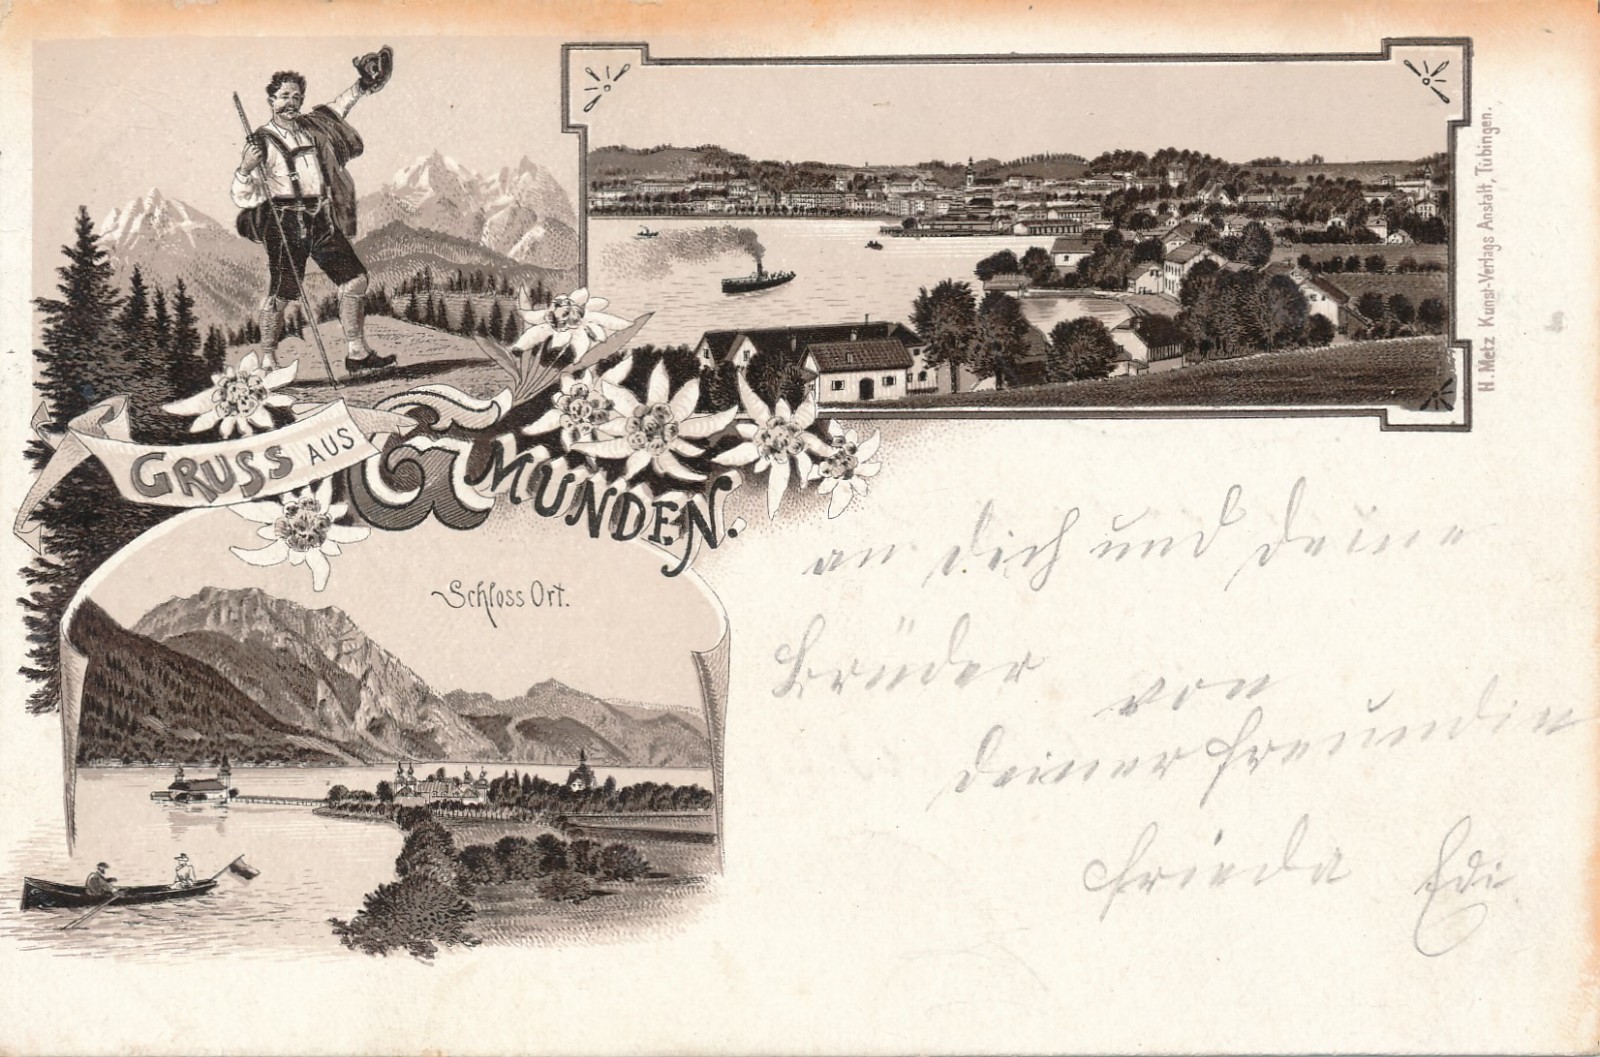 GRUSS AUS
GMUNDEN.
Schloss Ort.
H. Metz Kunst-Verlags Anstalt, Tübingen.
an dich und deine
Brüder von
deiner Freundin
Frieda Edi